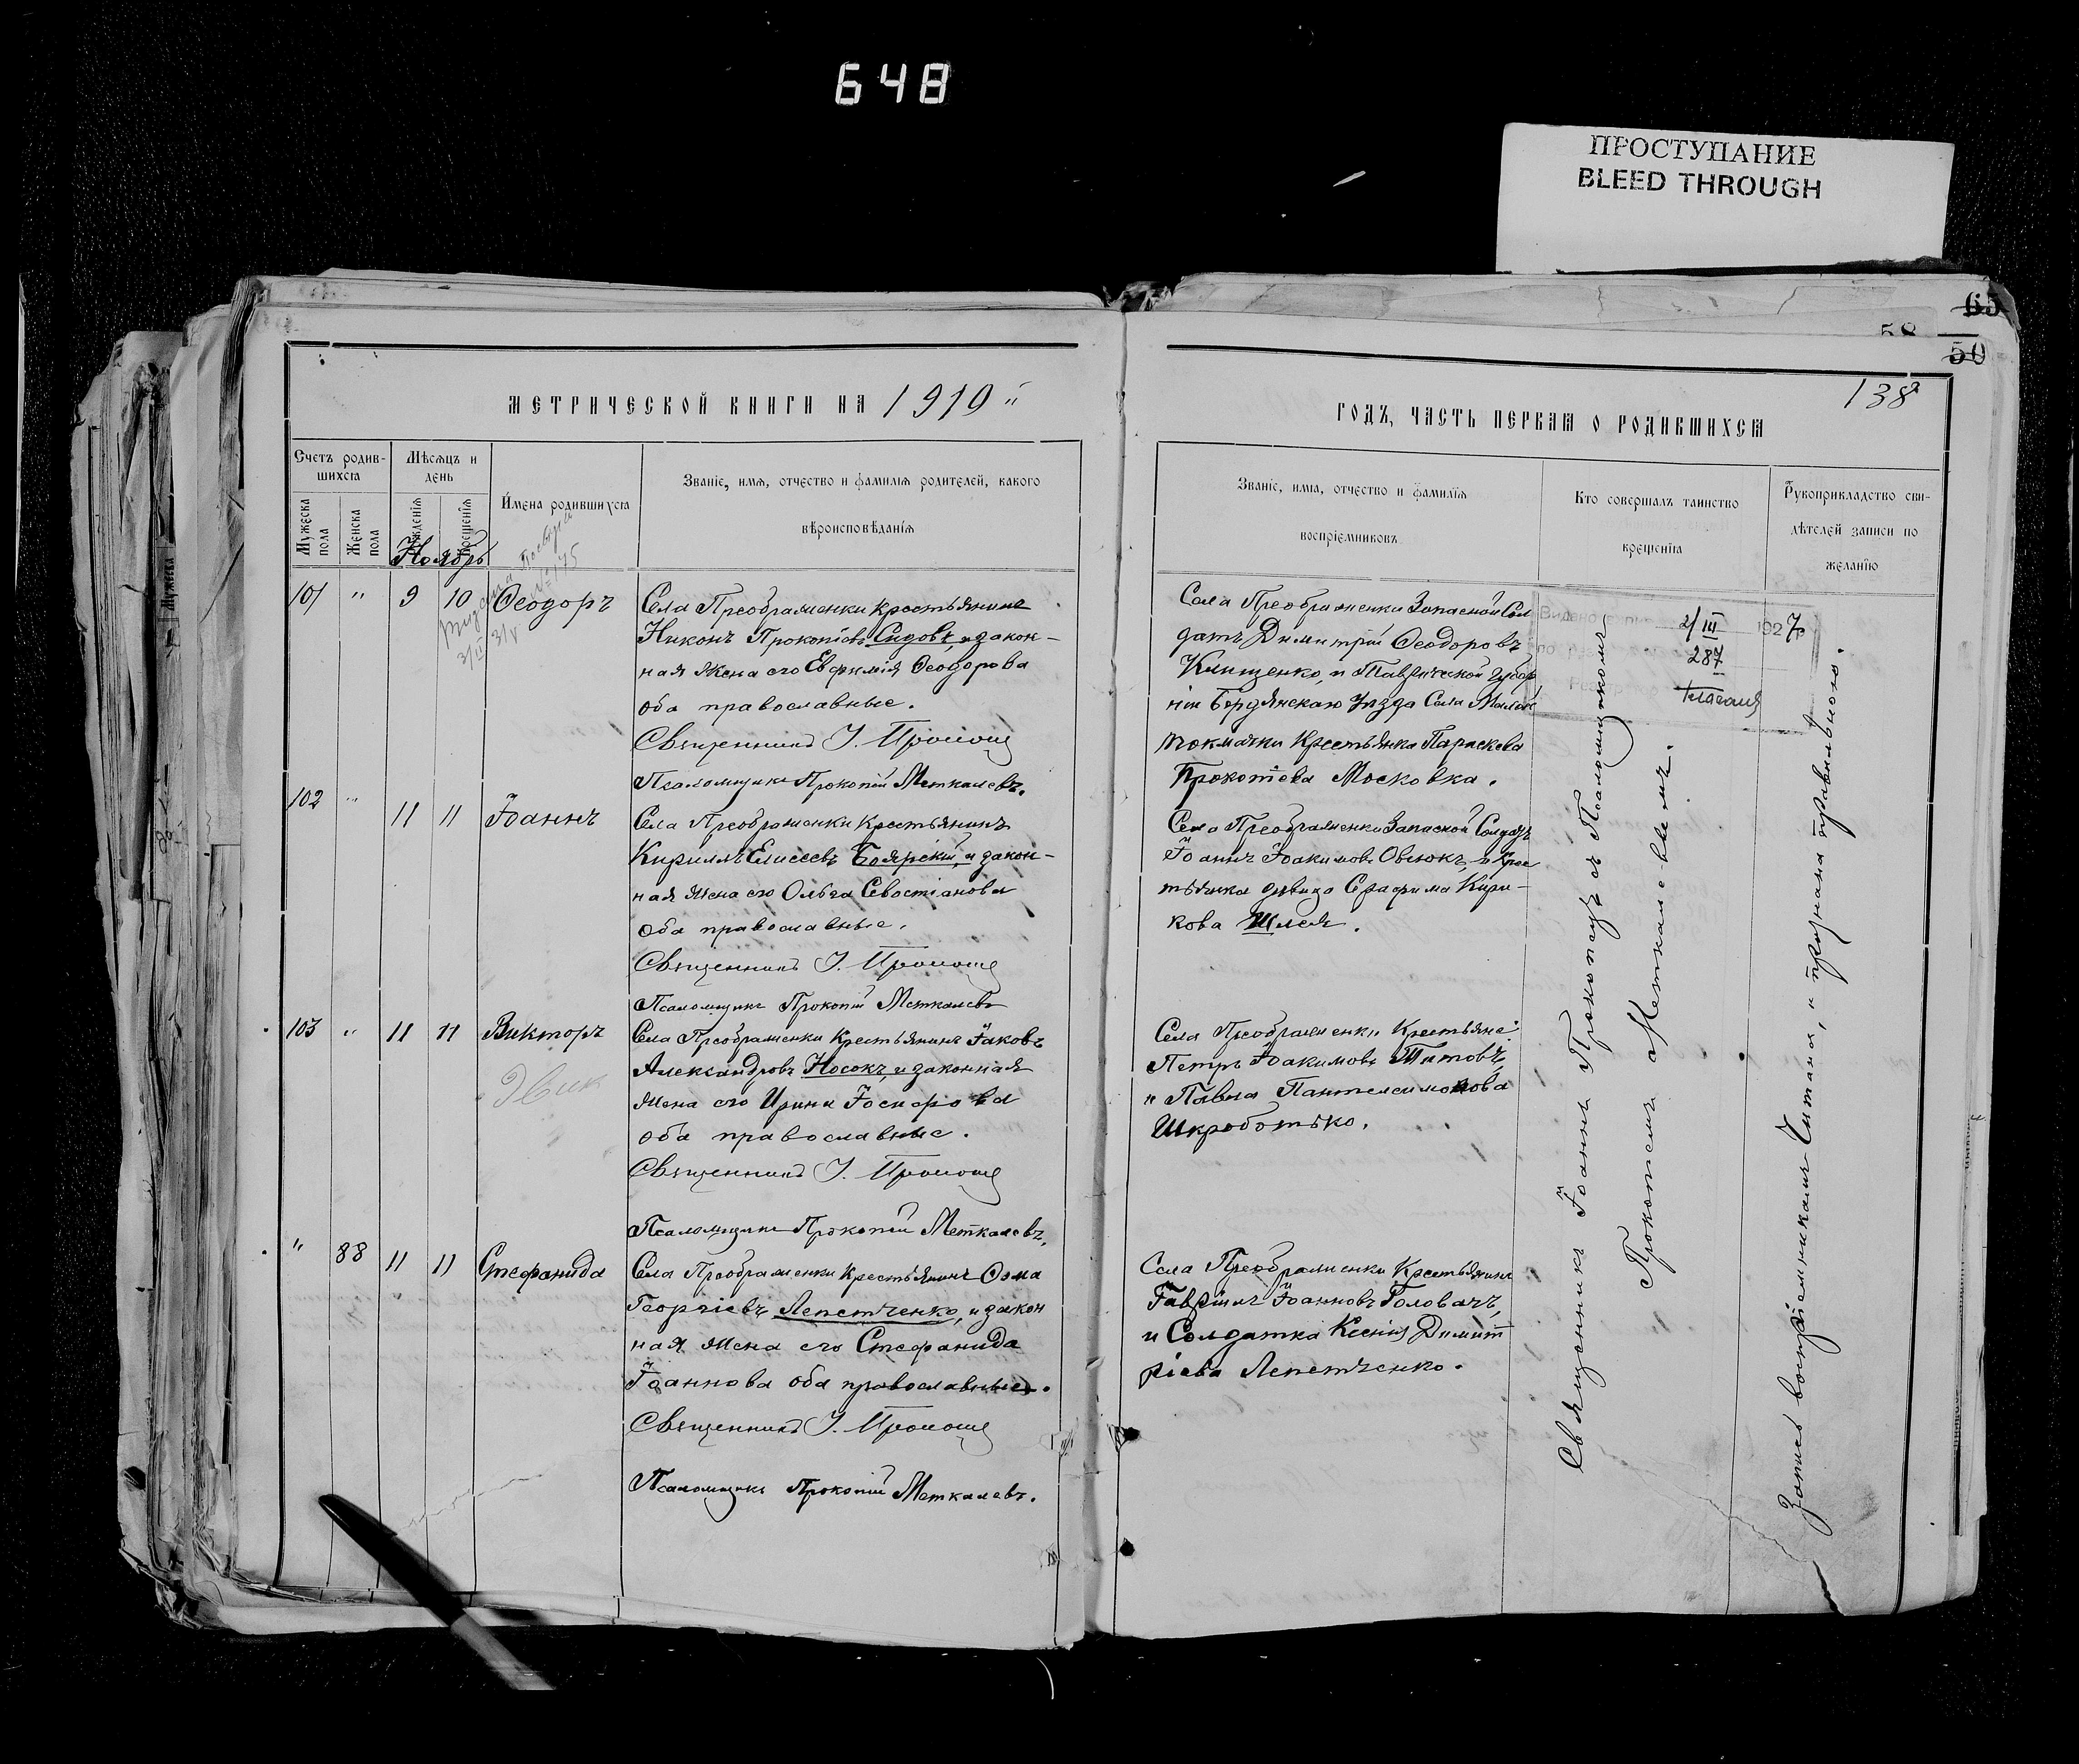 648
ПРОСТУПАНИЕ
BLEED THROUGH
65
58
50
138
МЕТРИЧЕСКОЙ КНИГИ НА 1919
ГОДЪ, ЧАСТЬ ПЕРВАЯ О РОДИВШИХСЯ
Счетъ родив-
шихся
Мужеска пола
Женска пола
Мѣсяцъ и
день
рожденія
крещенія
Имена родившихся
Званіе, имя, отчество и фамилія родителей, какого
вѣроисповѣданія
Званіе, имя, отчество и фамилія
воспріемниковъ
Кто совершалъ таинство
крещенія
Рукоприкладство сви-
дѣтелей записи по
желанію
Ноябрь
101 " 9 10 Ѳеодоръ
Села Преображенки крестьянинъ
Никонъ Прокопіевъ Сидовъ, и закон-
ная жена его Евфимія Ѳеодорова
оба православные.
Священникъ І.
Псаломщикъ Прокопій Меткалевъ.
Села Преображенки Запасной Сол
датъ Димитрій Ѳеодоровъ
Клищенко, и Таврической губер
ніи Бердянскаго уѣзда Села Малой
Токмачки Крестьянка Параскева
Прокопіева Московка.
2/III 1927
287
102 " 11 11 Іоаннъ
Села Преображенки Крестьянинъ
Кириллъ Елисеевъ Боярскій, и закон-
ная жена его Ольга Севостіанова
оба православные.
Священникъ І.
Псаломщикъ Прокопій Меткалевъ
Села Преображенки Запасной Солдатъ
Іоаннъ Іоакимовъ Овсюкъ, и Крес
тьянка дѣвица Серафима Кири-
кова Шлея.
103 " 11 11 Викторъ
Села Преображенки Крестьянинъ Іаковъ
Александровъ Носокъ, и законная
жена его Ирина Іосифова
оба православные.
Священникъ І.
Псаломщикъ Прокопій Меткалевъ.
Села Преображенки Крестьяне:
Петръ Іоакимовъ Титовъ,
и Павла Пантелеимонова
Шкроботько.
" 88 11 11 Стефанида
Села Преображенки Крестьянинъ Ѳома
Георгіевъ Лепетченко, и закон
ная жена его Стефанида
Іоаннова оба православные.
Священникъ І.
Псаломщикъ Прокопій Меткалевъ.
Села Преображенки Крестьянинъ
Гавріилъ Іоанновъ Головачъ,
и Солдатка Ксенія Димит
ріева Лепетченко.
Священникъ Іоаннъ съ Псаломщикомъ
Прокопіемъ Меткалевымъ.
Запись воспріемникамъ читана, и признана правильною.